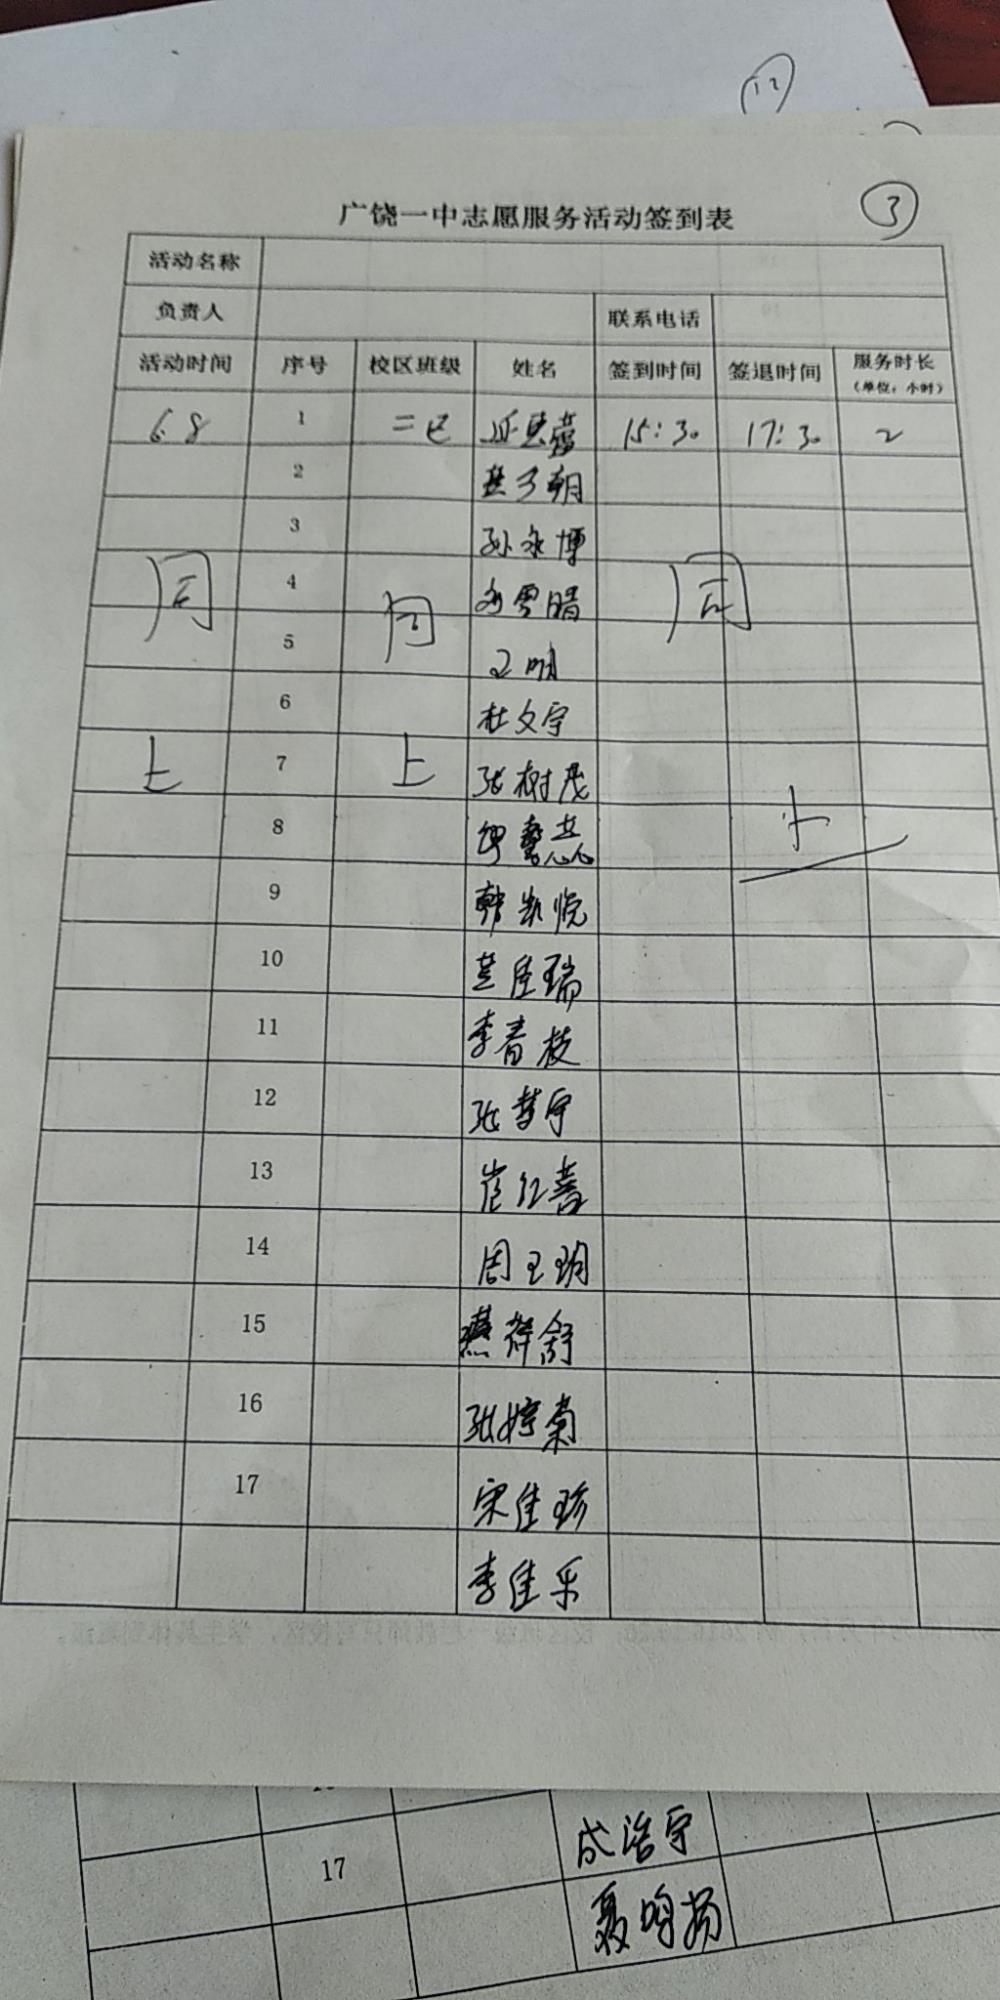 12
3
广饶一中志愿服务活动签到表
活动名称
负责人 联系电话
活动时间 序号 校区班级 姓名 签到时间 签退时间 服务时长
(单位：小时)
6.8 1 二 15:30 17:30 2
2
3 孙永博
同 4 同 同
5
6 杜文宇
上 7 上 张树茂 上
8
9 韩凯悦
10 佳瑞
11 李春枝
12 张梦宇
13 崔红喜
14 周玉玥
15 燕舒
16 张婷菊
17 宋佳珍
李佳乐
17 成浩宇
聂鸣扬